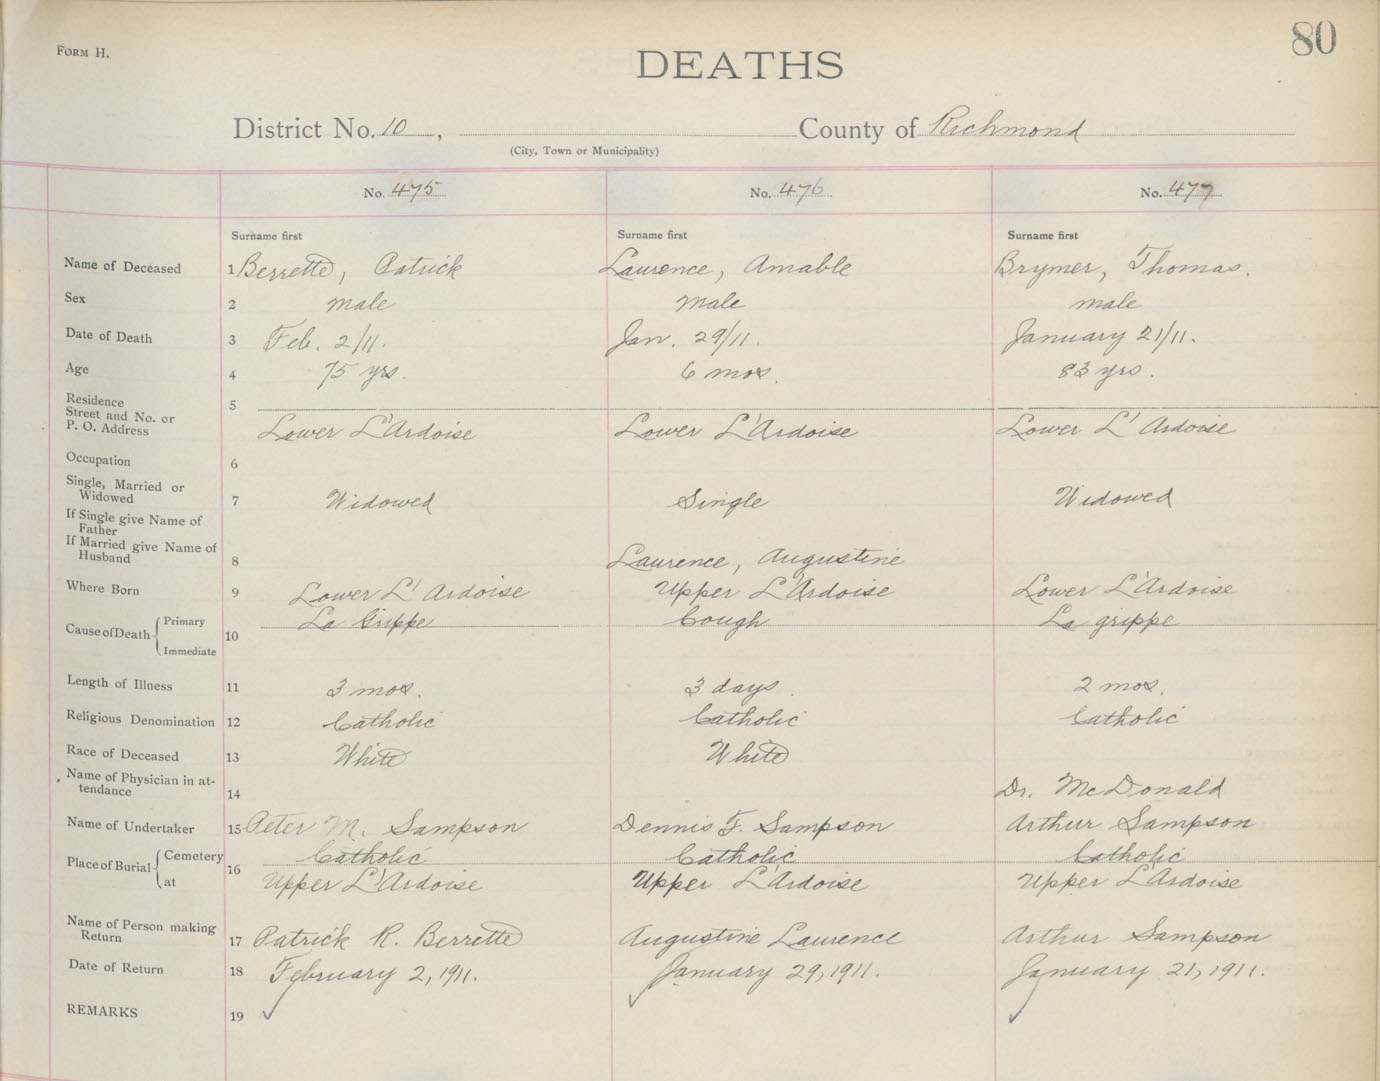 80
FORM H.
DEATHS
District No. 10, County of Richmond
(City, Town or Municipality)
No. 475 No. 476 No. 477
Surname first Surname first Surname first
Name of Deceased 1 Berrette, Patrick Laurence, Amable Brymer, Thomas.
Sex 2 male male male
Date of Death 3 Feb. 2/11. Jan. 29/11. January 21/11.
Age 4 75 yrs. 6 mos. 83 yrs.
Residence 5
Street and No. or
P. O. Address Lower L'Ardoise Lower L'Ardoise Lower L'Ardoise
Occupation 6
Single, Married or
Widowed 7 Widowed Single Widowed
If Single give Name of
Father
If Married give Name of
Husband 8 Laurence, Augustine
Where Born 9 Lower L'Ardoise Upper L'Ardoise Lower L'Ardoise
Cause of Death Primary 10 La Grippe Cough La grippe
Immediate
Length of Illness 11 3 mos. 3 days. 2 mos.
Religious Denomination 12 Catholic Catholic Catholic
Race of Deceased 13 White White
Name of Physician in at-
tendance 14 Dr. McDonald
Name of Undertaker 15 Peter M. Sampson Dennis F. Sampson Arthur Sampson
Place of Burial Cemetery 16 Catholic Catholic Catholic
at Upper L'Ardoise Upper L'Ardoise Upper L'Ardoise
Name of Person making
Return 17 Patrick R. Berrette Augustine Laurence Arthur Sampson
Date of Return 18 February 2, 1911. January 29, 1911. January 21, 1911.
REMARKS 19 ✓ ✓ ✓